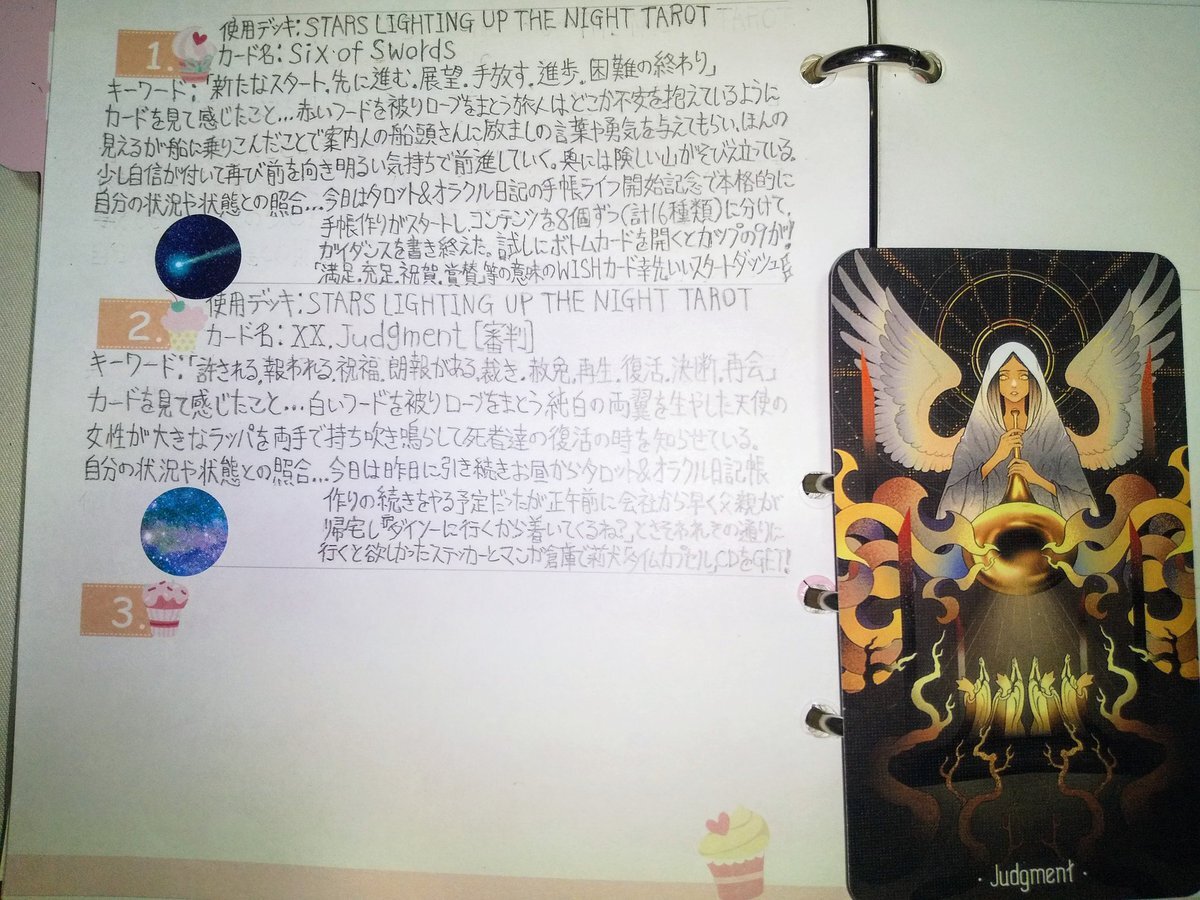 1.
使用デッキ:STARS LIGHTING UP THE NIGHT TAROT
カード名:Six of Swords
キーワード:「新たなスタート.先に進む.展望.手放す.進歩.困難の終わり」
カードを見て感じたこと…赤いフードを被りローブをまとう旅人は、どこか不安を抱えているように
見えるが船に乗りこんだことで案内人の船頭さんに励ましの言葉や勇気を与えてもらい、ほんの
少し自信が付いて再び前を向き明るい気持ちで前進していく。奥には険しい山がそびえ立っている。
自分の状況や状態との照合…今日はタロット&オラクル日記の手帳ライフ開始記念で本格的に
手帳作りがスタートし、コンテンツを8個ずつ(計16種類)に分けて、
ガイダンスを書き終えた。試しにボトムカードを開くとカップの9が!
「満足.充足.祝賀.賞賛」等の意味のWISHカード幸先いいスタートダッシュ
2.
使用デッキ:STARS LIGHTING UP THE NIGHT TAROT
カード名:XX.Judgment[審判]
キーワード:「許される.報われる.祝福.朗報がある.裁き.赦免.再生.復活.決断.再会」
カードを見て感じたこと…白いフードを被りローブをまとう純白の両翼を生やした天使の
女性が大きなラッパを両手で持ち吹き鳴らして死者達の復活の時を知らせている。
自分の状況や状態との照合…今日は昨日に引き続きお昼からタロット&オラクル日記帳
作りの続きをやる予定だったが正午前に会社から早く父親が
帰宅し「ダイソーに行くから着いてくるね?」とさそわれ、その通りに
行くと欲しかったステッカーとマンガ倉庫で「タイムカプセル」CDをGET!
3.
· Judgment ·